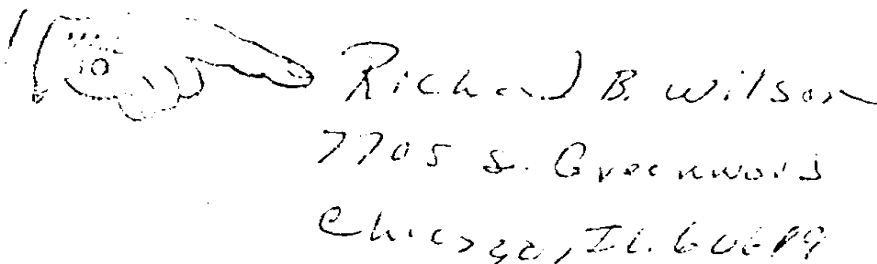 Richard B. Wilson
7705 S. Greenwood
Chicago, IL. 60619